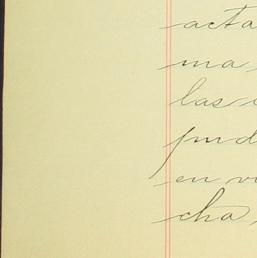 acta
ma,
las
pud
en vi
cha,